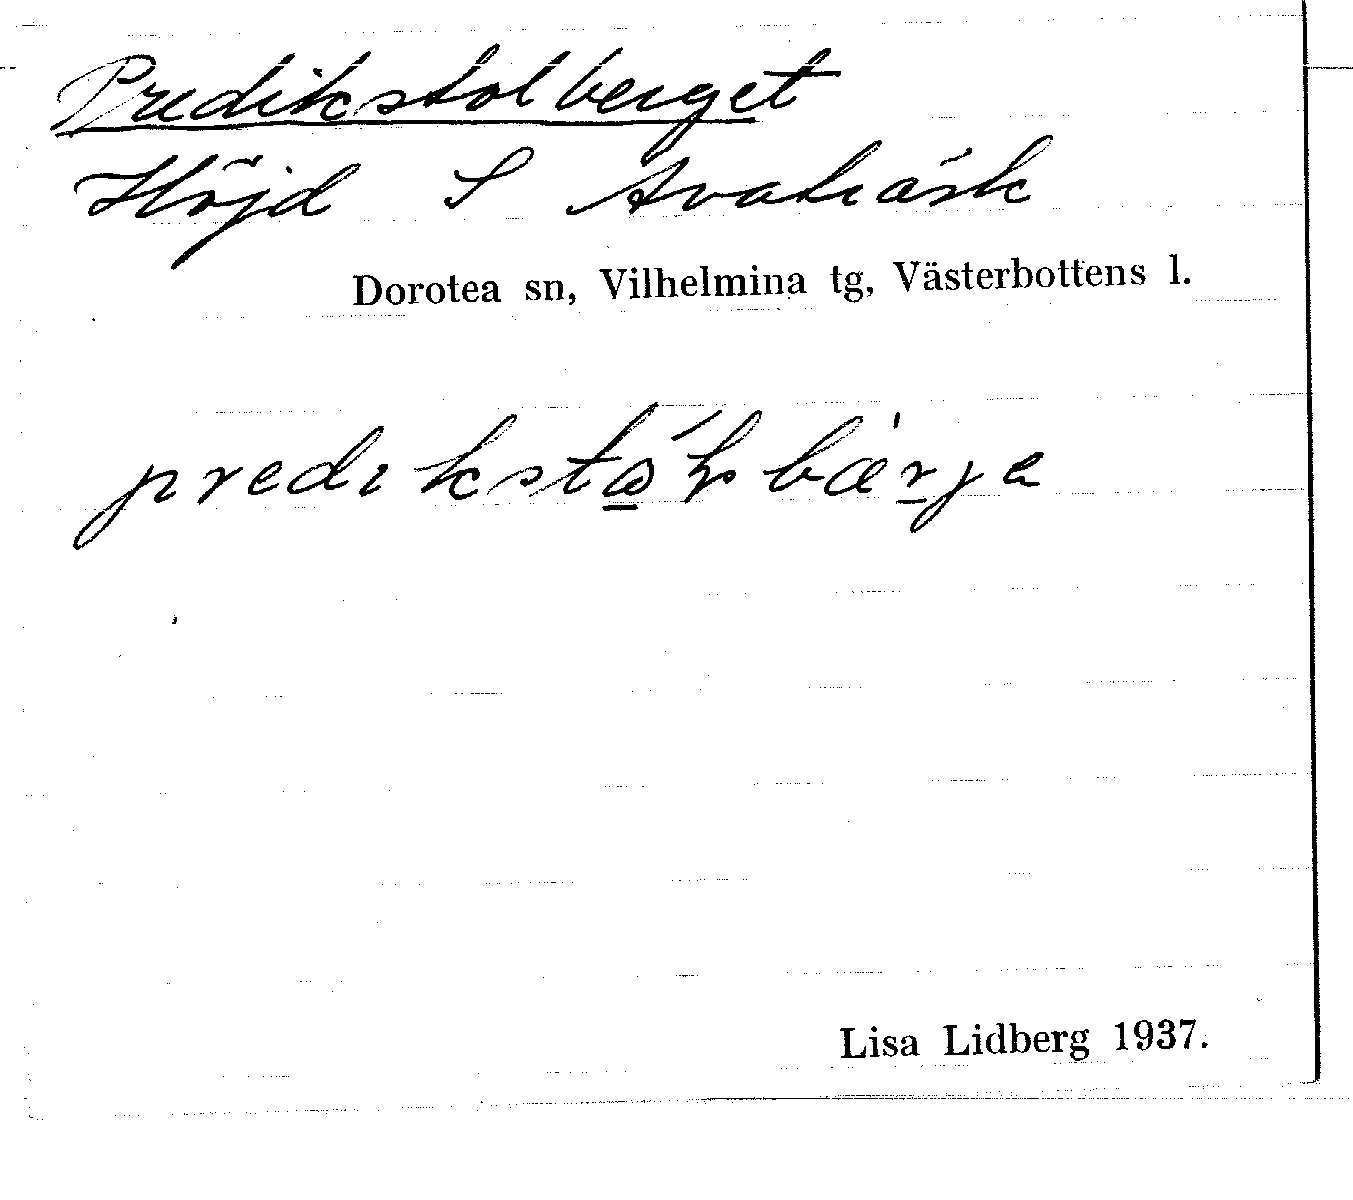 Predikstolberget
Höjd S Avaträsk
Dorotea sn, Vilhelmina tg, Västerbottens l.
Lisa Lidberg 1937.